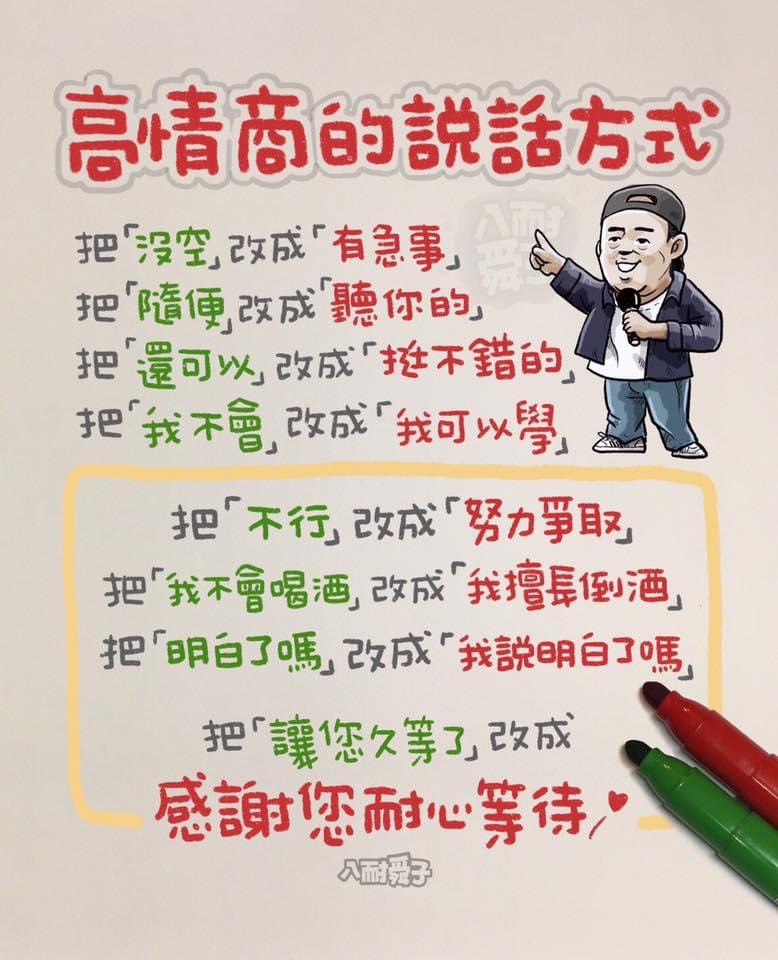 高情商的説話方式
八耐
舜子
把「沒空」改成「有急事」
把「隨便」改成「聽你的」
把「還可以」改成「挺不錯的」
把「我不會」改成「我可以學」
把「不行」改成「努力爭取」
把「我不會喝酒」改成「我擅長倒酒」
把「明白了嗎」改成「我説明白了嗎」
把「讓您久等了」改成
感謝您耐心等待
八耐舜子